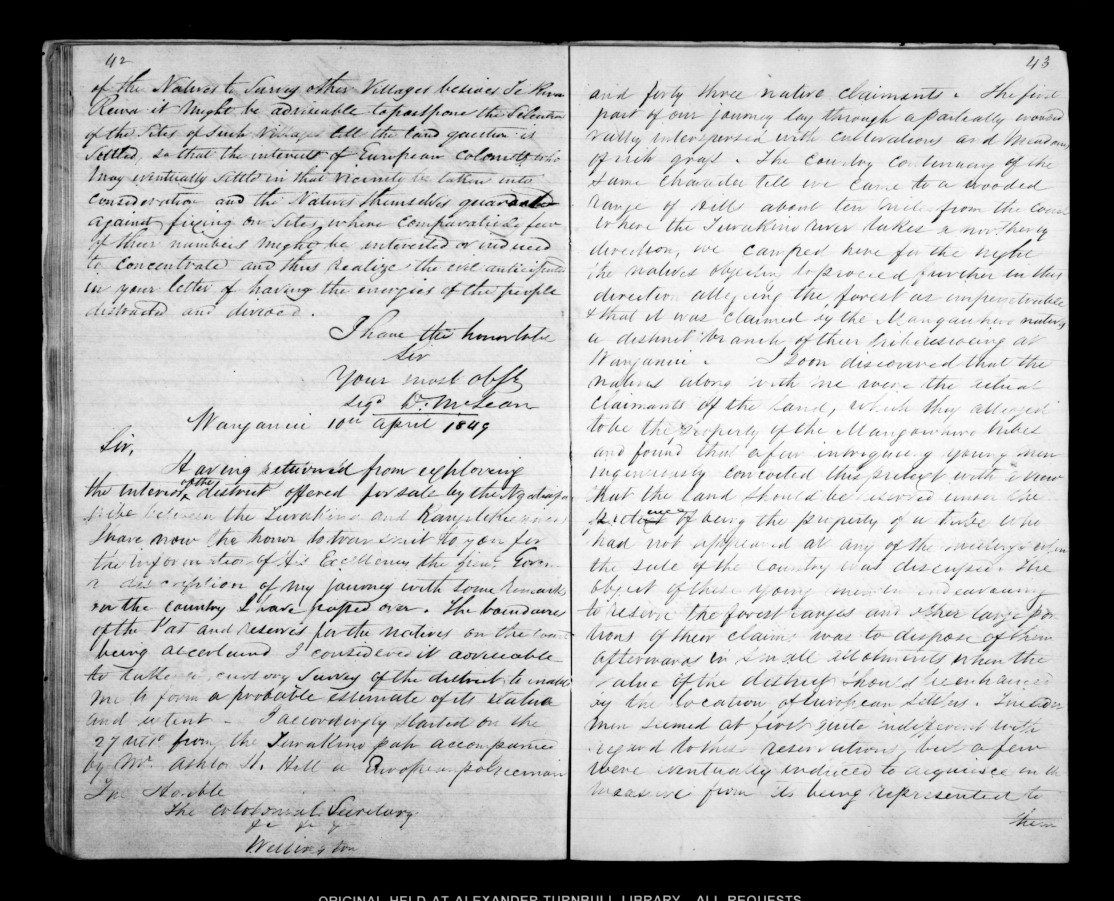 42
of the Natives to Survey other Villages besides Te Rewa
Rewa it might be adviseable to postpone the Selection
of the Sites of Such Villages till the land question is
Settled, so that the interests of European Colonists who
may eventually Settle in that vicinity be taken into
Consideration and the Natives themselves guarded
against fixing on Sites, where comparatively few
of their numbers might be interested or induced
to Concentrate and thus realize the evil anticipated
in your letter of having the energies of the people
distracted and divided.
I have the honor to be
Sir
Your most obt
Sigd D. McLean
Wanganui 10th April 1849
Sir,
Having returned from exploring
the interior of the district offered for sale by the Ngatiapa
tribe between the Turakino and Rangitikei rivers
I have now the honor to transmit to you for
the information of His Excellency the Govern
a description of my journey with some Remarks
on the country I have passed over. The boundaries
of the Pas and reserves for the natives on the coast
being ascertained I considered it adviseable
to take a cursory Survey of the district to enable
me to form a probable estimate of its value
and extent - I accordingly started on the
27 ulto from the Turakino pah accompanied
by Mr. Ashlo St. Hill a European policeman
The Honble
The Colonial Secretary
&c &c &c
Wellington
43
and forty three native claimants. The first
part of our journey lay through a partially wooded
valley interspersed with cultivations and Meadows
of rich grass. The country continuing of the
same character till we came to a wooded
range of hills about ten miles from the coast
Where the Turakino river takes a northerly
direction, we camped here for the night
the natives objecting to proceed further in this
direction alleging the forest as impenetrable
& that it was claimed by the natives
a distinct branch of their tribe residing at
Wanganui. I soon discovered that the
natives along with me were the actual
claimants of the land, which they alleged
to be the property of the tribes
and found that a few intrigueing young men
ingeniously concocted this pretext with a view
that the land should be reserved under the
pretence of being the property of a tribe who
had not appeared at any of the meetings when
the sale of the Country was discussed. The
object of these young men in endeavouring
to reserve the forest ranges and other large por
tions of their claims was to dispose of them
afterwards in small allotments when the
value of the district should be enhanced
by the location of European Settlers. The older
men seemed at first quite indifferent with
regard to these reservations, but a few
were eventually induced to acquiesce in the
measure from its being represented to
them
ORIGINAL HELD AT ALEXANDER TURNBULL LIBRARY. ALL REQUESTS